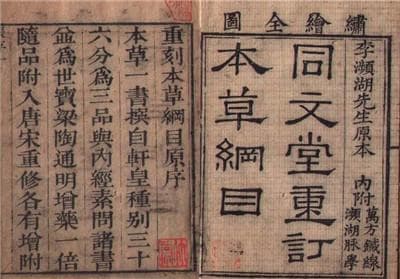 繡繪全圖
李瀕湖先生原本
內附
萬方鍼線
瀕湖脈學
同文堂重訂
本草綱目
重刻本草綱目原序
本草一書撰自軒皇種別三十
六分爲三品與內經素問諸書
並爲世寶梁陶通明增藥一倍
隨品附入唐宋重修各有增附